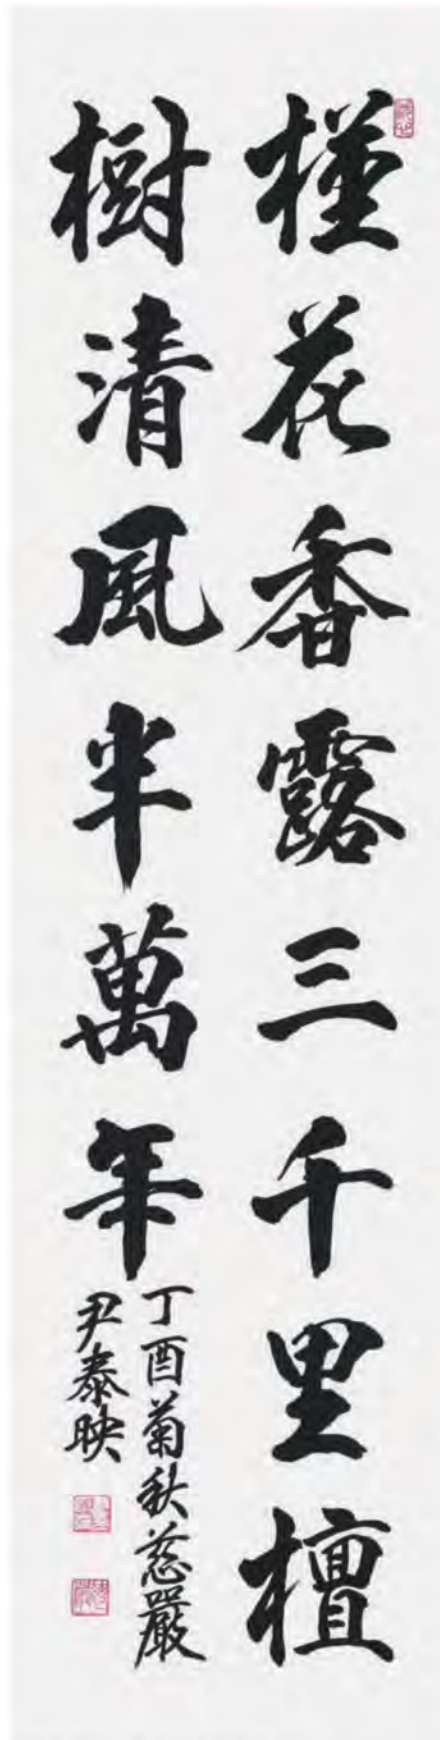 槿花香露三千里檀
樹清風半萬年
丁酉菊秋慈嚴
尹泰映